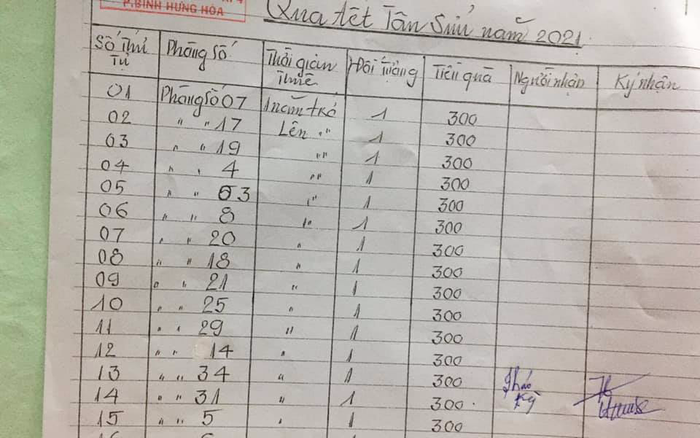 P.BÌNH HƯNG HÒA
Quà tết Tân Sửu năm 2021
Số Thứ Tự Phòng số Thời gian Thuê Đối tượng Tiền quà Người nhận Ký nhận
01 Phòng số 07 1 năm trở 1 300
02 " " 17 Lên " 1 300
03 " " 19 " 1 300
04 " " 4 " 1 300
05 " " 63 " 1 300
06 " " 8 " 1 300
07 " " 20 " 1 300
08 " " 18 " 1 300
09 " " 21 " 1 300
10 " " 25 " 1 300
11 " " 29 " 1 300
12 " " 14 " 1 300
13 " " 34 " 1 300
14 " " 31 " 1 300
15 " " 5 " 1 300